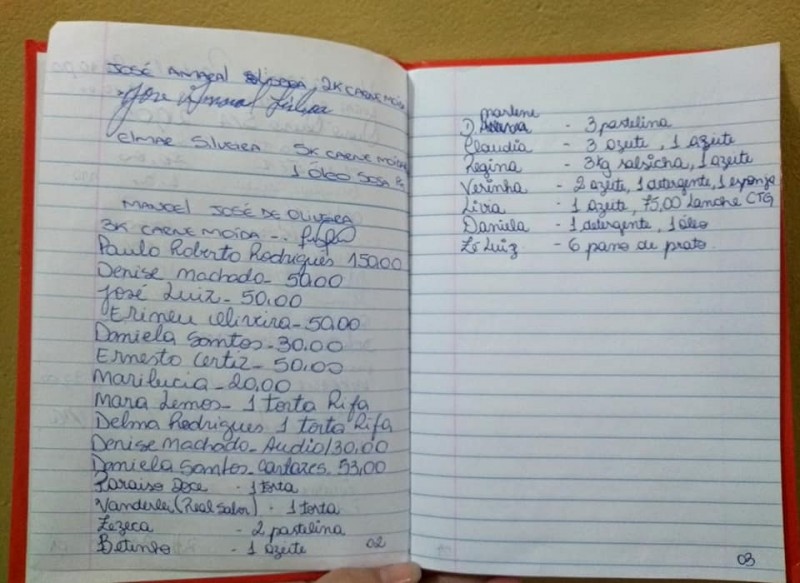 JOSÉ AMARAL SILVEIRA, 2K CARNE MOÍDA
José Amaral Silveira
ELMAR SILVEIRA 5K CARNE MOÍDA
1 ÓLEO SOJA
MANOEL JOSÉ DE OLIVEIRA
3K CARNE MOÍDA --
Paulo Roberto Rodrigues 150,00
Denise Machado - 50,00
José Luiz - 50,00
Erimeu Oliveira - 50,00
Daniela Santos - 30,00
Ernesto Certiz - 50,00
Marilucia - 20,00
Mara Lemos - 1 torta Rifa
Delma Rodrigues 1 torta Rifa
Denise Machado - Audio/30,00
Daniela Santos - Cartazes. 53,00
Paraiso Doce - 1 torta
Vanderlei (Real Sabor) - 1 torta
Zezeca - 2 pastelina
Betinho - 1 azeite
02
marlene
D. - 3 pastelina
Claudia - 3 azeite, 1 azeite
Regina - 3kg salsicha, 1 azeite
Verinha - 2 azeite, 1 detergente, 1 esponja
Livia - 1 azeite, 75,00 Lanche CTG
Daniela - 1 detergente, 1 óleo
Zé Luiz - 6 pano de prato
03